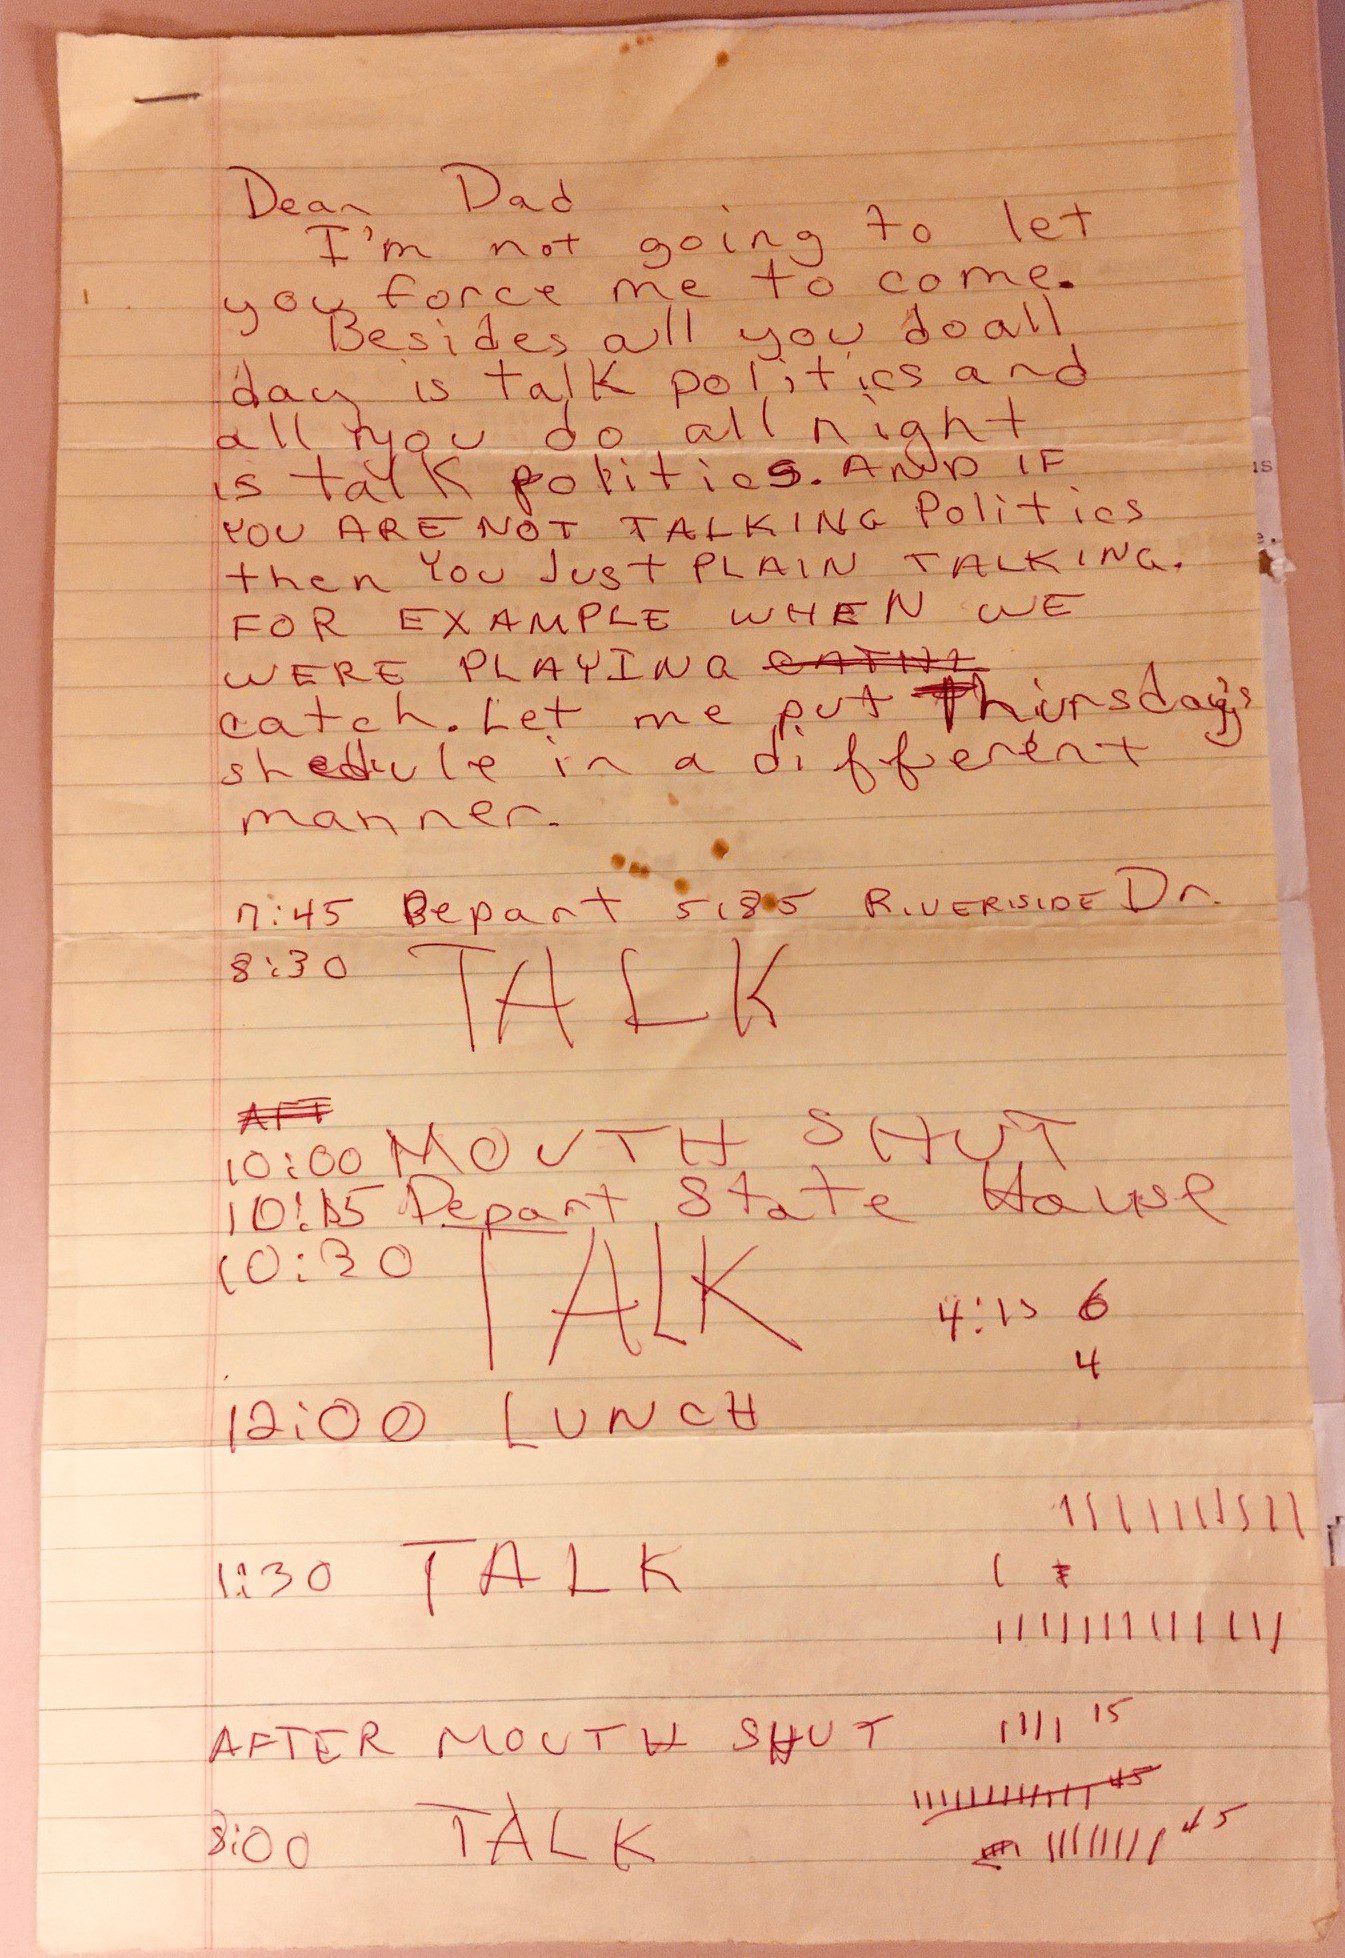 Dear Dad
I'm not going to let
you force me to come.
Besides all you do all
day is talk politics and
all you do all night
is talk politics. AND IF
YOU ARE NOT TALKING Politics
then You Just PLAIN TALKING.
FOR EXAMPLE WHEN WE
WERE PLAYING
catch. Let me put Thursday's
shedule in a different
manner.
7:45 Depart 5185 RIVERSIDE Dr.
8:30 TALK
AFT
10:00 MOUTH SHUT
10:15 Depart State House
10:30 TALK
4:15 6
4
12:00 LUNCH
1:30 TALK
AFTER MOUTH SHUT 15
45
8:00 TALK 45